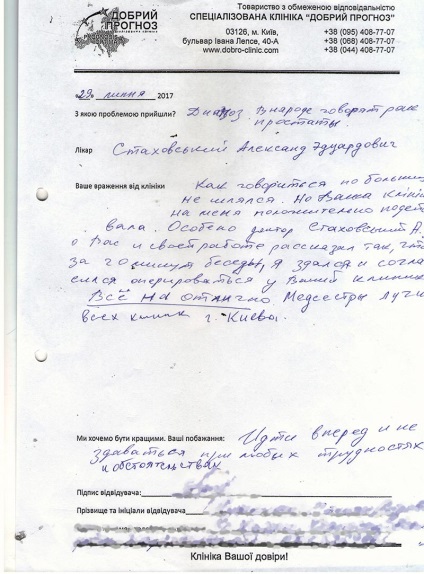 ДОБРИЙ
ПРОГНОЗ
Товариство з обмеженою відповідальністю
СПЕЦІАЛІЗОВАНА КЛІНІКА "ДОБРИЙ ПРОГНОЗ"
03126, м. Київ,
бульвар Івана Лепсе, 40-А
www.dobro-clinic.com
+38 (095) 408-77-07
+38 (068) 408-77-07
+38 (044) 408-77-07
29 липня 2017
З якою проблемою прийшли? В народе говорят рак
простаты.
Лікар Стаховський Александ Эдуардович
Ваше враження від клініки Как говориться по больниц
не шлялся. Но Ваша Клини
на меня положительно подейст
вала. Особено доктор Стаховський А.
о Вас и своей работе рассказал так, что
за 20 минут беседы, я здался и согла
сился оперироваться у Вашей клинике
Всё на отлично. Медсестры лучш
всех клиник г. Киева.
Ми хочемо бути кращими. Ваші побажання: Идти вперед и не
здаваться при любых трудностях
и обстоятельствах
Підпис відвідувача:
Прізвище та ініціали відвідувача
Клініка Вашої довіри!